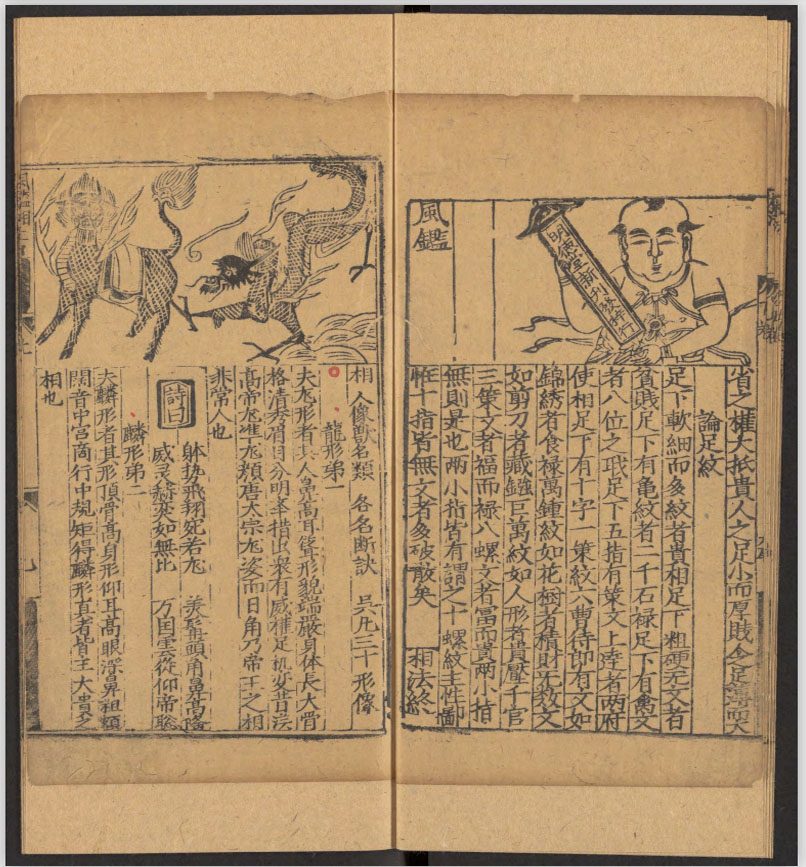 明德堂新刊發行
風鑑
省之權大抵貴人之足小而厚賤人足薄而大
論足紋
足下軟細而多紋者貴相足下粗硬无文者
貧賤足下有亀紋者二千石禄足下有禽文
者八位之戝足下五指有策文上達者兩府
使相足下有十字一策紋六曹侍郎有文如
錦綉者食禄萬鍾紋如花樹者積財无数文
如剪刀者藏鏹巨萬紋如人形者貴壓千官
三策文者福而禄八螺文者富而貴兩小指
無則是也兩小指皆有謂之十螺紋主性鄙
惟十指皆無文者多破散矣 相法終
相 人像獸名類 各名断訣 吳凢三十形像
龍形苐一
夫龙形者其人鼻高耳聳形貌端嚴身体長大骨
格清秀眉目分明舉揩出衆有威權足机变昔汉
高帝龙準龙顔唐太宗龙姿而日角乃帝王之相
非常人也
詩曰
躰势飛翔宛若龙 美髯頭角鼻高隆
威灵赫奕如無比 万国雲從仰帝聡
麟形苐二
夫麟形者其形頂骨高身形仰耳高眼深鼻祖額
闊音中宫商行中規矩得麟形直者皆主大貴之
相也